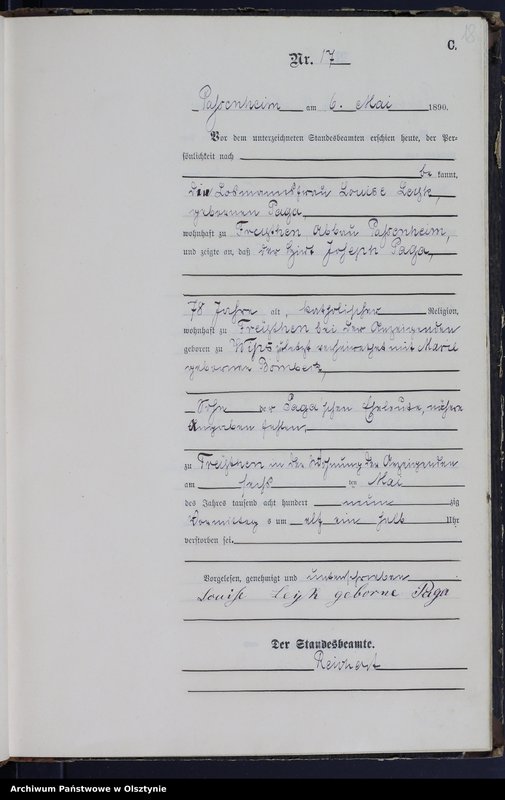 18
C.
Nr. 17
Passenheim am 6. Mai 1890.
Vor dem unterzeichneten Standesbeamten erschien heute, der Per-
sönlichkeit nach
be kannt,
die Losmannsfrau Louise
geborenen Paga
wohnhaft zu Abbau Passenheim,
und zeigte an, daß der Hirt Joseph Paga,
78 Jahre alt, katholischer Religion,
wohnhaft zu bei der Anzeigenden
geboren zu zuletzt verheirathet mit Marie
geborene
Sohn der Paga'schen Eheleute, nähere
Angaben fehlen,
zu in der Wohnung der Anzeigenden
am sechs ten Mai
des Jahres tausend acht hundert neun zig
Vormittag s um elf ein halb Uhr
verstorben sei.
Vorgelesen, genehmigt und unterschrieben
Louise geborne Paga
Der Standesbeamte.
Archiwum Państwowe w Olsztynie